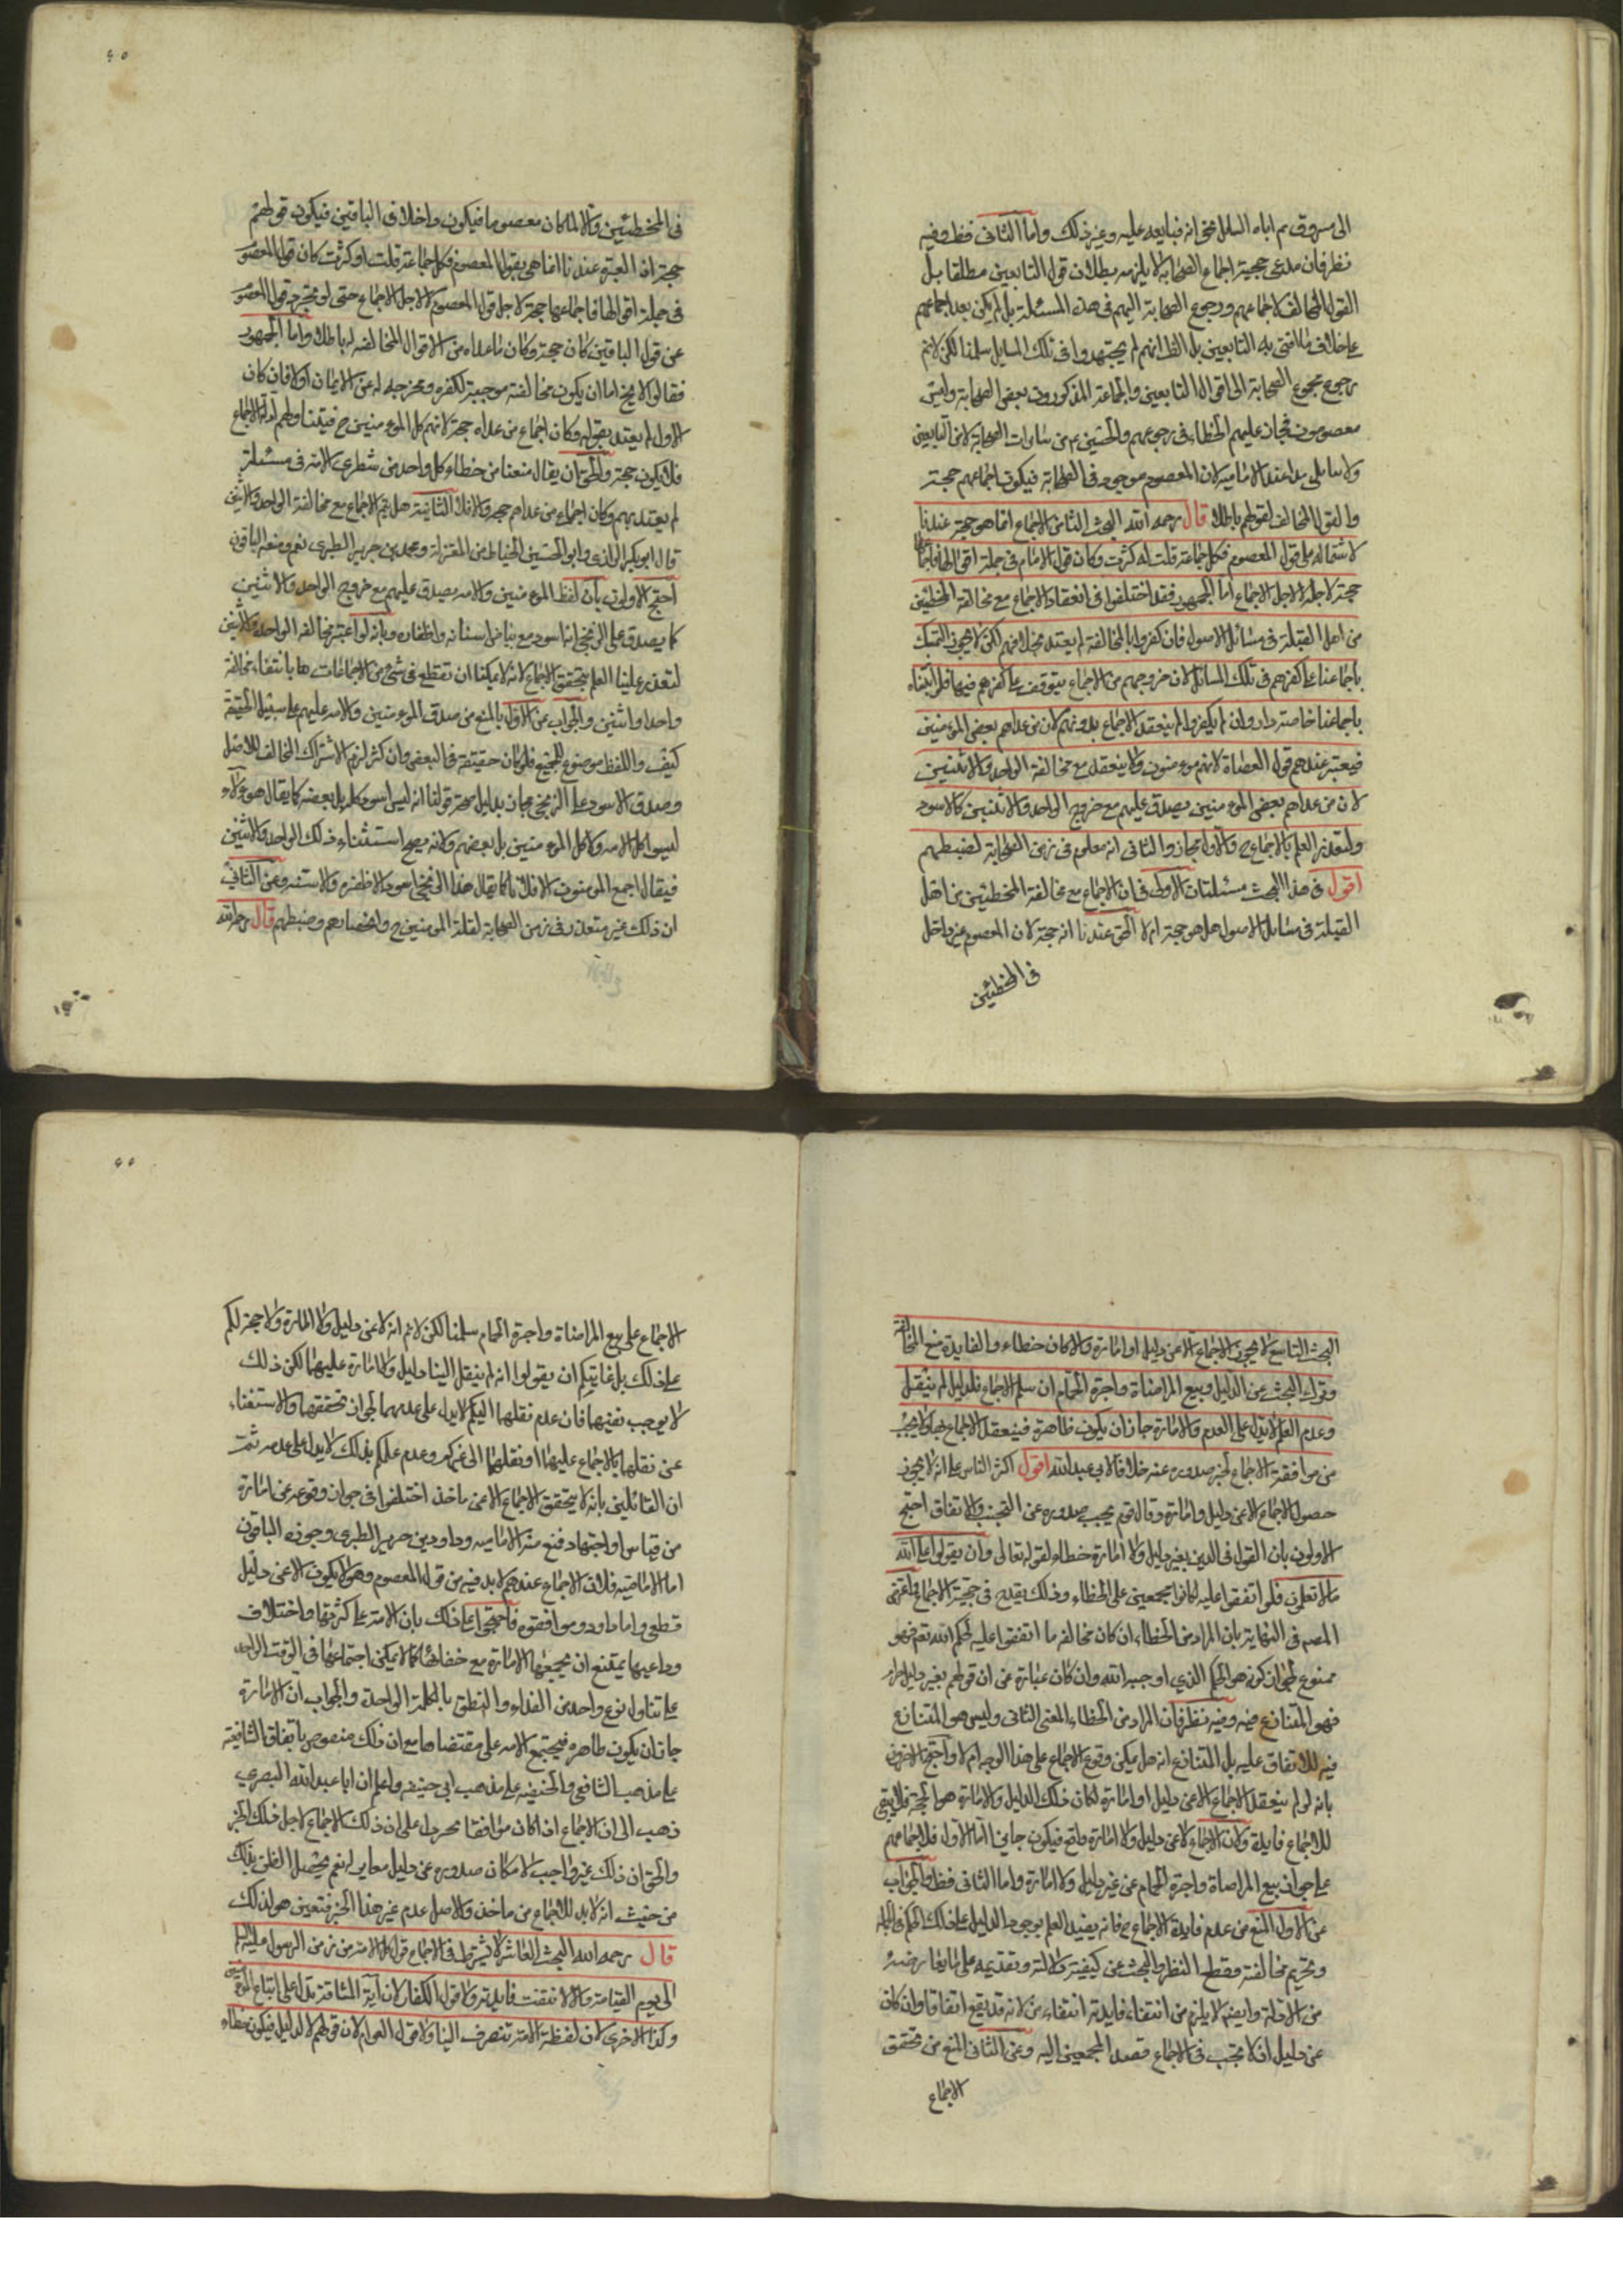 الى مسروق ثم اتاه السائل فخبرانه فبايعه عليه وغير ذلك واما الثانى فظ وفيه
نظر فان مدعى حجية اجماع الصحابة لا يلزمه بطلان قول التابعين مطلقا بل
القول المخالف لاجماعهم ورجوع الصحابة اليهم فى هذه المسئلة بل لم يكن بعد اجماعهم
على خلاف ما افتى به التابعين بل الظ انهم لم يجتهدوا فى تلك المسايل سلمنا لكن لا نم
رجوع مجموع الصحابة الى اقوال التابعين والجماعة المذكورون بعض الصحابة وليس
معصومون فجاز عليهم الخطاء فى رجوعهم والحسين ع م من سادات الصحابة لا من التابعين
ولا سائلى بدا عند الامامية لان المعصوم موجود فى الصحابة فيكون اجماعهم حجة
والقول المخالف لقولهم باطلا قال رحمه الله البحث الثامن الاجماع انما هو حجة عندنا
لاشتماله على قول المعصوم فكل جماعة قلت او كثرت وكان قول الامام فى جملة اقوالها فاجماعها
حجة لاجله لا لاجل الاجماع اما الجمهور فقد اختلفوا فى انعقاد الاجماع مع مخالفة المخطئين
من اهل القبلة فى مسائل الاصول فان كفروا بالمخالفة لم يعتد بخلافهم لكن لا يجوز التمسك
باجماعنا على كفرهم فى تلك المسائل لان خروجهم من الاجماع يتوقف على كفرهم فيها فلو اثبتناه
باجماعنا خاصة دار وان لم يكفروا لم ينعقد الاجماع بدونهم لان من عداهم بعض المؤمنين
فيعتبر عندهم قول العصاة لانهم مومنون ولا ينعقد مع مخالفة الواحد والاثنين
لان من عداهم بعض المومنين يصدق عليهم مع خروج الواحد والاثنين كالاسود
ولتعذر العلم بالاجماع ح والاول مجاز والثانى انه معلوم فى زمن الصحابة لضبطهم
اقول فى هذا البحث مسئلتان الاولى فى ان الاجماع مع مخالفة المخطئين من اهل
القبلة فى مسايل الاصول هل هو حجة ام لا الحق عندنا انه حجة لان المعصوم غير داخل
فى المخطئين
فى المخطئين والا لما كان معصوما فيكون داخلا فى الباقين فيكون قولهم
حجة اذ العبرة عندنا انما هى بقول المعصوم فكل جماعة قلت او كثرت كان قول المعصوم
فى جملة اقوالها فاجماعها حجة لاجل قول المعصوم لا لاجل الاجماع حتى لو تجرد قول المعصوم
عن قول الباقين كان حجة وكان ما عداه من الاقوال المخالفه له باطلا واما الجمهور
فقالوا لا يخ اما ان يكون مخالفته موجبة لكفره ومخرجه له عن الايمان اولا فان كان
الاول لم يعتد بقوله وكان اجماع من عداه حجة لانهم كل المومنين ح فيتناولهم ادلة الاجماع
فلا يكون حجة والحق ان يقال منعنا من خطاء كل واحد من شطرى الامة فى مسئلة
لم يعتد بهم وكان اجماع من عداهم حجة والا فلا الثانية هل يتم الاجماع مع مخالفة الواحد والاثنين
قال ابو بكر الرازى وابو الحسين الخياط من المعتزلة ومحمد بن جرير الطبرى نعم ومنعه الباقون
احتج الاولون بان لفظ المومنين والامه يصدق عليهم مع خروج الواحد والاثنين
كما يصدق على الزنجى انه اسود مع بياض اسنانه واظفاره وبانه لو اعتبر مخالفه الواحد والاثنين
لتعذر علينا العلم بتحقق الاجماع لانه لا يمكننا ان نقطع فى شئ من الاجماعات ها بانتفاء مخالفة
واحد او اثنين والجواب عن الاول بالمنع من صدق المومنين والامه عليهم على سبيل الحقيقة
كيف واللفظ موضوع للجميع فلو كان حقيقة فى البعض وان كثر لزم الاشتراك المخالف للاصل
وصدق الاسود على الزنجى مجاز بدليل صحة قولنا انه ليس اسود كله بل بعضه كما يقال هؤلاء
ليسوا كل الامه ولا كل المومنين بل بعضهم ولانه يصح استثناء ذلك الواحد والاثنين
فيقال اجمع المومنون الا فلانا كما يقال هذا الزنجى اسود الا ظفره والاسنه وعن الثانى
ان ذلك غير متعذر فى زمن الصحابة لقلة المومنين ح وانحصارهم وضبطهم قال رحمه الله
البحث التاسع لا يجوز الاجماع الا عن دليل او امارة والا كان خطاء والفايدة منع المخالفة
وترك البحث عن الدليل وبيع المراضاة واجرة الحمام ان سلم الاجماع فلدليل لم ينقل
وعدم العلم لا يدل على العدم والامارة جاز ان يكون ظاهرة فينعقد الاجماع بها ولا يجب
من موافقة الاجماع لخبر صدوره عنه خلافا لابى عبد الله اقول اكثر الناس على انه لا يجوز
حصول الاجماع الا عن دليل وامارة وقال قوم يجب صدوره عن التبخيت والاتفاق احتج
الاولون بان القول فى الدين بغير دليل ولا امارة خطاء لقوله تعالى وان يقولوا على الله
ما لا تعلمون فلو اتفقوا عليه لكانوا مجمعين على الخطاء وذلك يقدح فى حجية الاجماع واعترض
المصم فى النهاية بان المراد من الخطاء ان كان مخالفه ما اتفقوا عليه لحكم الله تعم فهو
ممنوع لجواز كونه هو الحكم الذى اوجبه الله وان كان عبارة عن ان قولهم بغير دليل امارة
فهو المتنازع فيه وفيه نظر فان المراد من الخطاء المعنى الثانى وليس هو المتنازع
فيه للاتفاق عليه بل المتنازع انه هل يمكن وقوع الاجماع على هذا الوجه ام لا واحتج الاخرون
بانه لو لم ينعقد الاجماع الا عن دليل او امارة لكان ذلك الدليل والامارة هو الحجة فلا يبقى
للاجماع فايدة ولان الاجماع لا عن دليل ولا امارة واقع فيكون جايزا اما الاول فلاجماعهم
على جواز بيع المراضاة واجرة الحمام عن غير دليل ولا امارة واما الثانى فظ والجواب
عن الاول المنع من عدم فايدة الاجماع ح فانه يفيد العلم بوجود الدليل على ذلك الحكم فى الجملة
وتحريم مخالفته وقطع النظر والبحث عن كيفيته ودلالته وتقديمه على ما يعارضه
من الادلة وايضم لا يلزم من انتفاء فايدته انتفاءه لانه قد يقع اتفاقا وان كان
عن دليل اذ لا يجب فى الاجماع قصد المجمعين اليه وعن الثانى المنع من تحقق
الاجماع
الاجماع على بيع المراضاة واجرة الحمام سلمنا لكن لا نم انه لا عن دليل ولا امارة ولا حجة لكم
على ذلك بل غايتكم ان يقولوا انه لم ينقل الينا دليل ولا امارة عليهما لكن ذلك
لا يوجب نفيهما فان عدم نقلهما اليكم لا يدل على عدمهما لجواز تحققهما والاستغناء
عن نقلها بالاجماع عليهما او نقلهما الى غيركم وعدم علمكم بذلك لا يدل على عدمه ثمت
ان القائلين بانه لا يتحقق الاجماع الا عن ماخذ اختلفوا فى جواز وقوعه عن امارة
من قياس او اجتهاد فمنع منه الامامية وداود بن جرير الطبرى وجوزه الباقون
اما الامامية فلان الاجماع عندهم لا بد فيه من قول المعصوم وهو لا يكون الا عن دليل
قطعى واما داود وموافقوه فاحتجوا على ذلك بان الامة على كثرتها واختلاف
دواعيها يمتنع ان يجمعها الامارة مع خفائها كما لا يمكن اجتماعها فى الوقت الواحد
على تناول نوع واحد من الغذاء والنطق بالكلمة الواحدة والجواب ان الامارة
جاز ان يكون ظاهرة فيجتمع الامه على مقتضاها مع ان ذلك منقوض باتفاق الشافعية
على مذهب الشافعى والحنفيه على مذهب ابى حنيفه واعلم ان ابا عبد الله البصرى
ذهب الى ان الاجماع اذا كان موافقا لخبر دل على ان ذلك الاجماع لاجل ذلك الخبر
والحق ان ذلك غير واجب لامكان صدوره عن دليل مغاير له نعم يحصل الظن بذلك
من حيث انه لا بد للاجماع من ماخذ والاصل عدم غير هذا الخبر فتعين هو لذلك
قال رحمه الله البحث العاشر لا يشترط فى الاجماع قول كل الامة من زمن الرسول عليه السلم
الى يوم القيامة والا لانتفت فايدته ولا قول الكفار لان آية المشاقة تدل على اتباع المؤمنين
وكذا الاخرى لان لفظة الامة تنصرف الينا ولا قول العوام لان قولهم لا لدليل فيكون خطاء